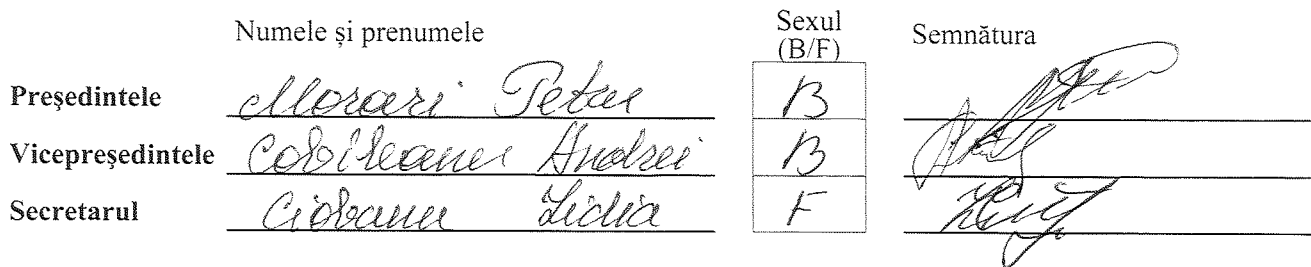 Numele și prenumele Sexul (B/F) Semnătura
Președintele Morari Petru B
Vicepreședintele Cobîleanu Andrei B
Secretarul Ciobanu Lidia F